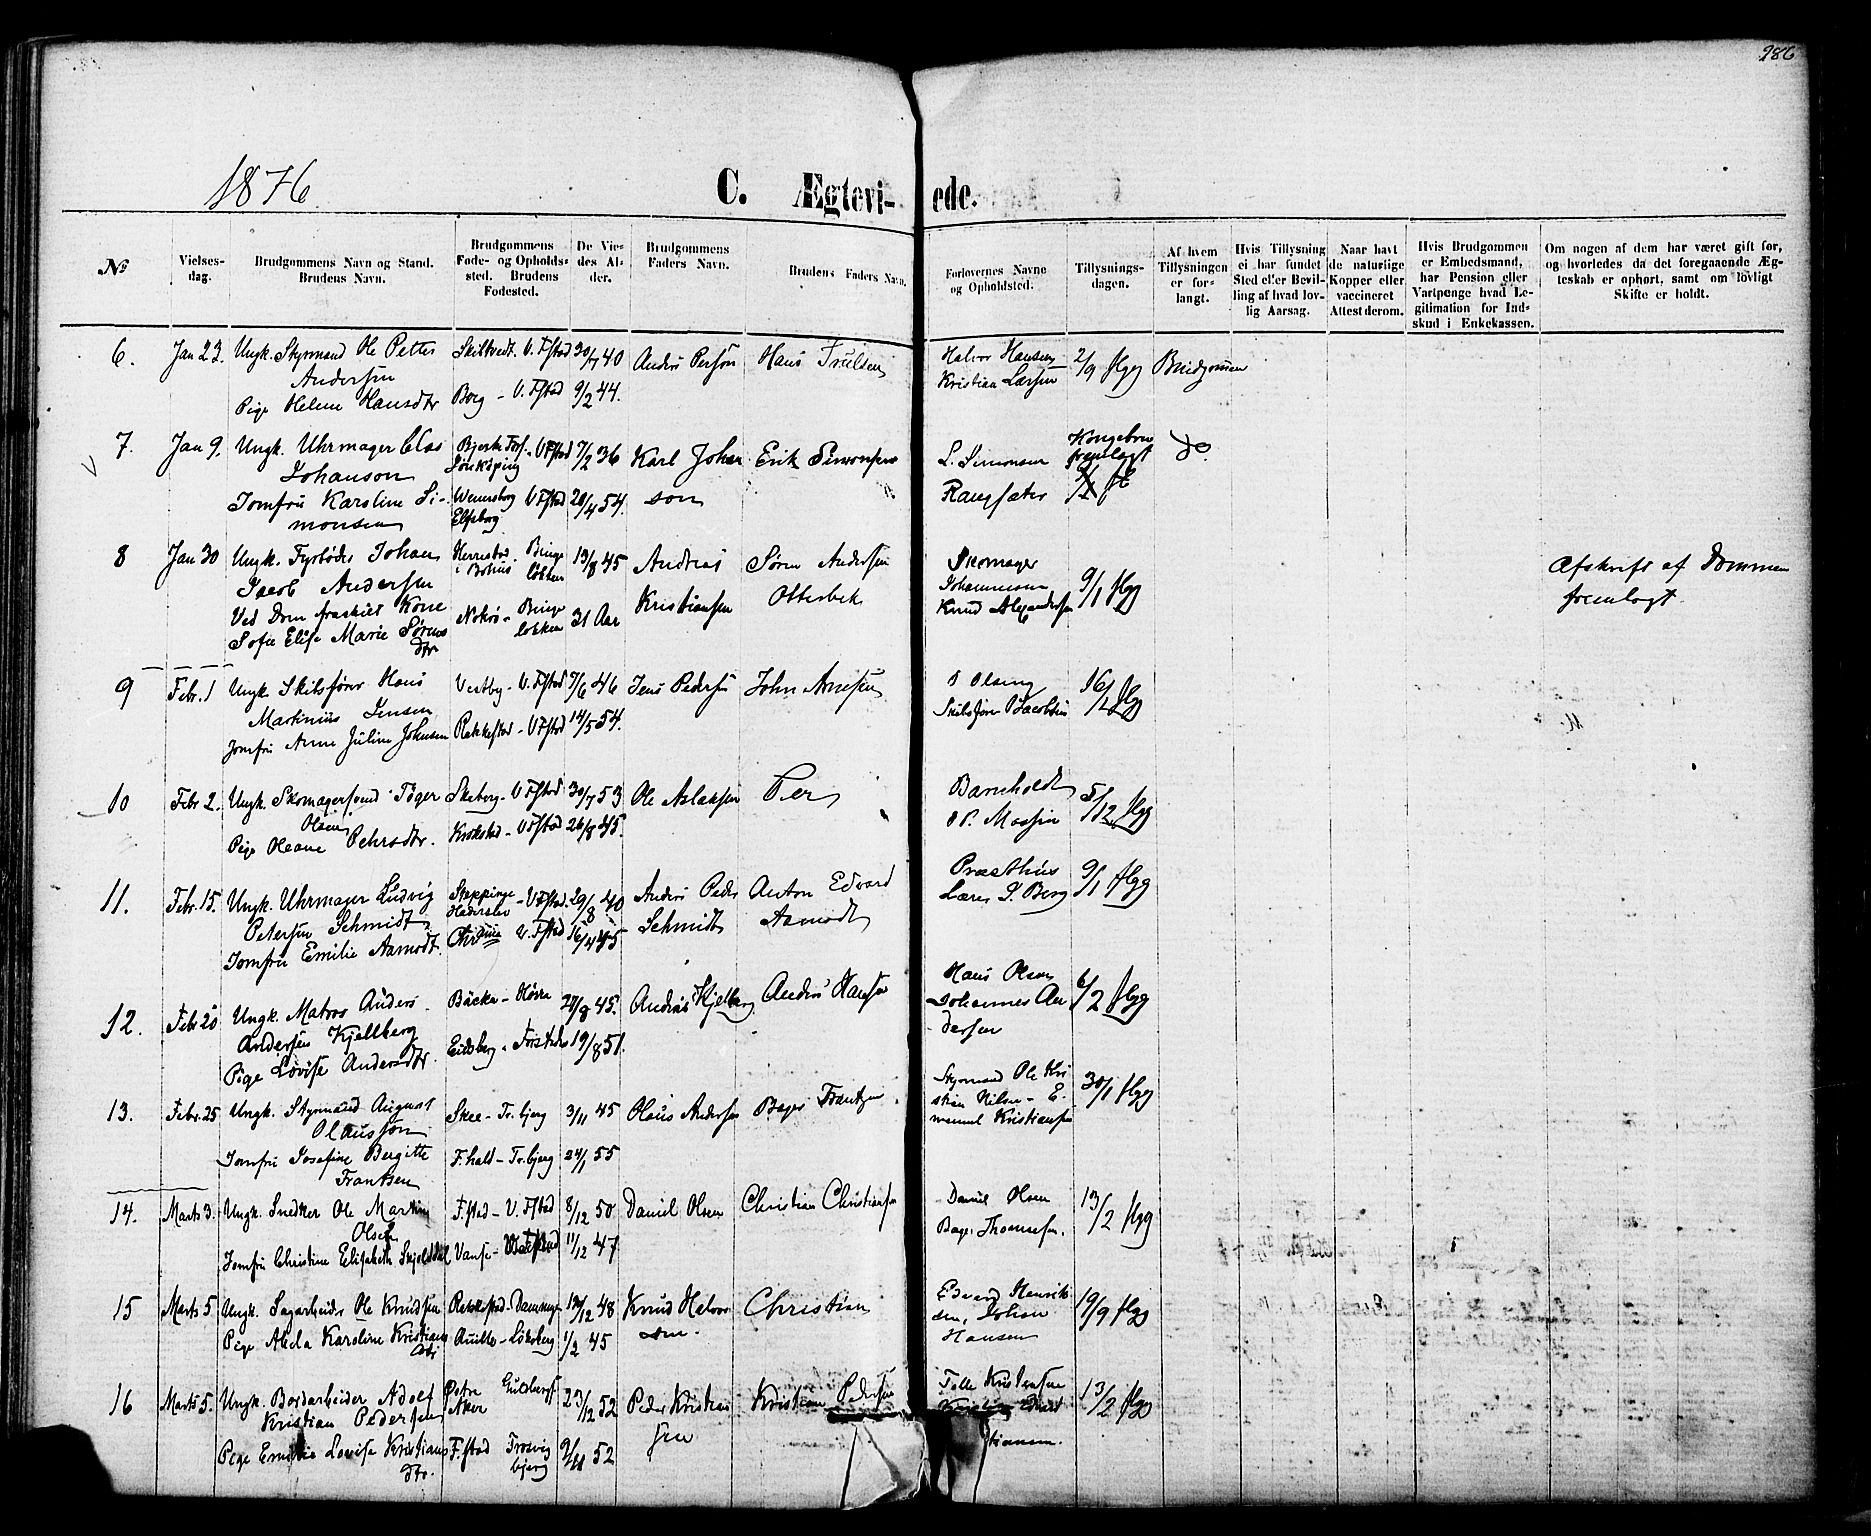 986
1876.
C. Ægtevi-ede.
№
Vielses-dag.
Brudgommens Navn og Stand. Brudens Navn.
Brudgommens Føde- og Opholds-sted. Brudens Fødested.
De Vie-des Al-der.
Brudgommens Faders Navn.
Brudens Faders Navn.
Forlovernes Navne og Opholdsted.
Tillysnings-dagen.
Af hvem Tillysningen er for-langt.
Hvis Tillysning ei har fundet Sted eller Bevil-ling af hvad lov-lig Aarsag.
Naar havt de naturlige Kopper eller vaccineret Attest derom.
Hvis Brudgommen er Embedsmand, har Pension eller Vartpenge hvad Le-gitimation for Ind-skud i Enkekassen.
Om nogen af dem har været gift før, og hvorledes da det foregaaende Æg-teskab er ophørt, samt om lovligt Skifte er holdt.
6. Jan 23. Ungk. Styrmand Ole Petter Skiltvedt. V. Fstad 30/7 40 Anders Person Hans Trulsen Halvor Hansen 2/9 Brudgommen
Andersen Kristian Larsen
Pige Helene Hansdtr Borg - V. Fstad 9/2 44.
7. Jan 9. Ungk. Uhrmager Clas V Fstad 7/2 36 Karl Johan Erik Simonsen L. Simonsen Kongebrev fremlagt do
Johanson Jönköping son
Jomfru Karoline Si- Wenersborg V Fstad 20/4 54.
monsen Elfsborg
8 Jan 30 Ungk. Fyrbøder Johan Herrestad Binge 13/8 45 Andreas Søren Andersen Skomager 9/1 Afskrift af Dommen
Jacob Andersen i Bohus løkken Kristiansen Otterbek Johannesen fremlagt.
Ved Dom fraskilt Kone Binge 31 Aar Knud Alexandersen
Sofie Elise Marie Sørens løkken
dtr
9 Febr. 1 Ungk. Skibsfører Hans Vestby - V. Fstad 7/6 46 Jens Pedersen John Arnesen O Olsen 16/1
Martinius Jensen Skibsfører Jacobsen
Jomfru Anne Juline Johnsen Rakkestad - V Fstad 14/5 54.
10 Febr 2. Ungk. Skomagersvend Tøger Skeberg - V Fstad 30/7 53 Ole Aslaksen Peer Barnholdt 5/12
Olsen
Pige Oleane Pehrsdtr. Krokstad - V Fstad 26/8 45.
11. Febr. 15. Ungk. Uhrmager Ludvig Steppinge - V Fstad. 29/8 40 Anders Peder Anton Edvard Præsthus 9/1
Petersen Schmidt Haderslev Schmidt Aamodt Berg
Jomfru Emilie Aamodt. V. Fstad 16/4 45
12. Febr 20 Ungk. Matros Anders Bäcke - 27/8 45. Anders Kjelberg Anders Hansen Hans Olsen 6/2
Andersen Kjellberg Johannes An
Pige Lovise Andersdtr. Eidsberg - 19/8 51. dersen
13. Febr. 25 Ungk. Styrmand August Skee - Tr. bjerg 3/11 45 Olaus Andersen Frantzen Styrmand Ole Kri 30/1
Olausson stian Nilsen - E-
Jomfru Josefine Bergitte F. hald - Tr. bjerg 24/1 55 manuel Kristiansen
Frantsen
14. Marts 3. Ungk. Snedker Ole Martin F. stad - V. Fstad 8/12 50 Daniel Olsen Christian Christiansen Daniel Olsen 13/2
Olsen
Jomfru Christine Elisabeth Skjolddal Vanse - 11/12 47 Thomesen.
15 Marts 5 Ungk. Sagarbeider Ole Knudsen Rakkestad - 12/12 48 Knud Halvor Christian Edvard Henrik 19/9
sen sen, Johan
Pige Alida Karoline Kristians 1/2 45 Hansen
dtr
16 Marts 5. Ungk. Bordarbeider Adolf Østre 23/12 52 Peder Kristian Kristian Pedersen 13/2
Kristian Pedersen Aker sen
Pige Emilie Lovise Kristians F. stad Trosvig 9/11 52
dtr. bjerg